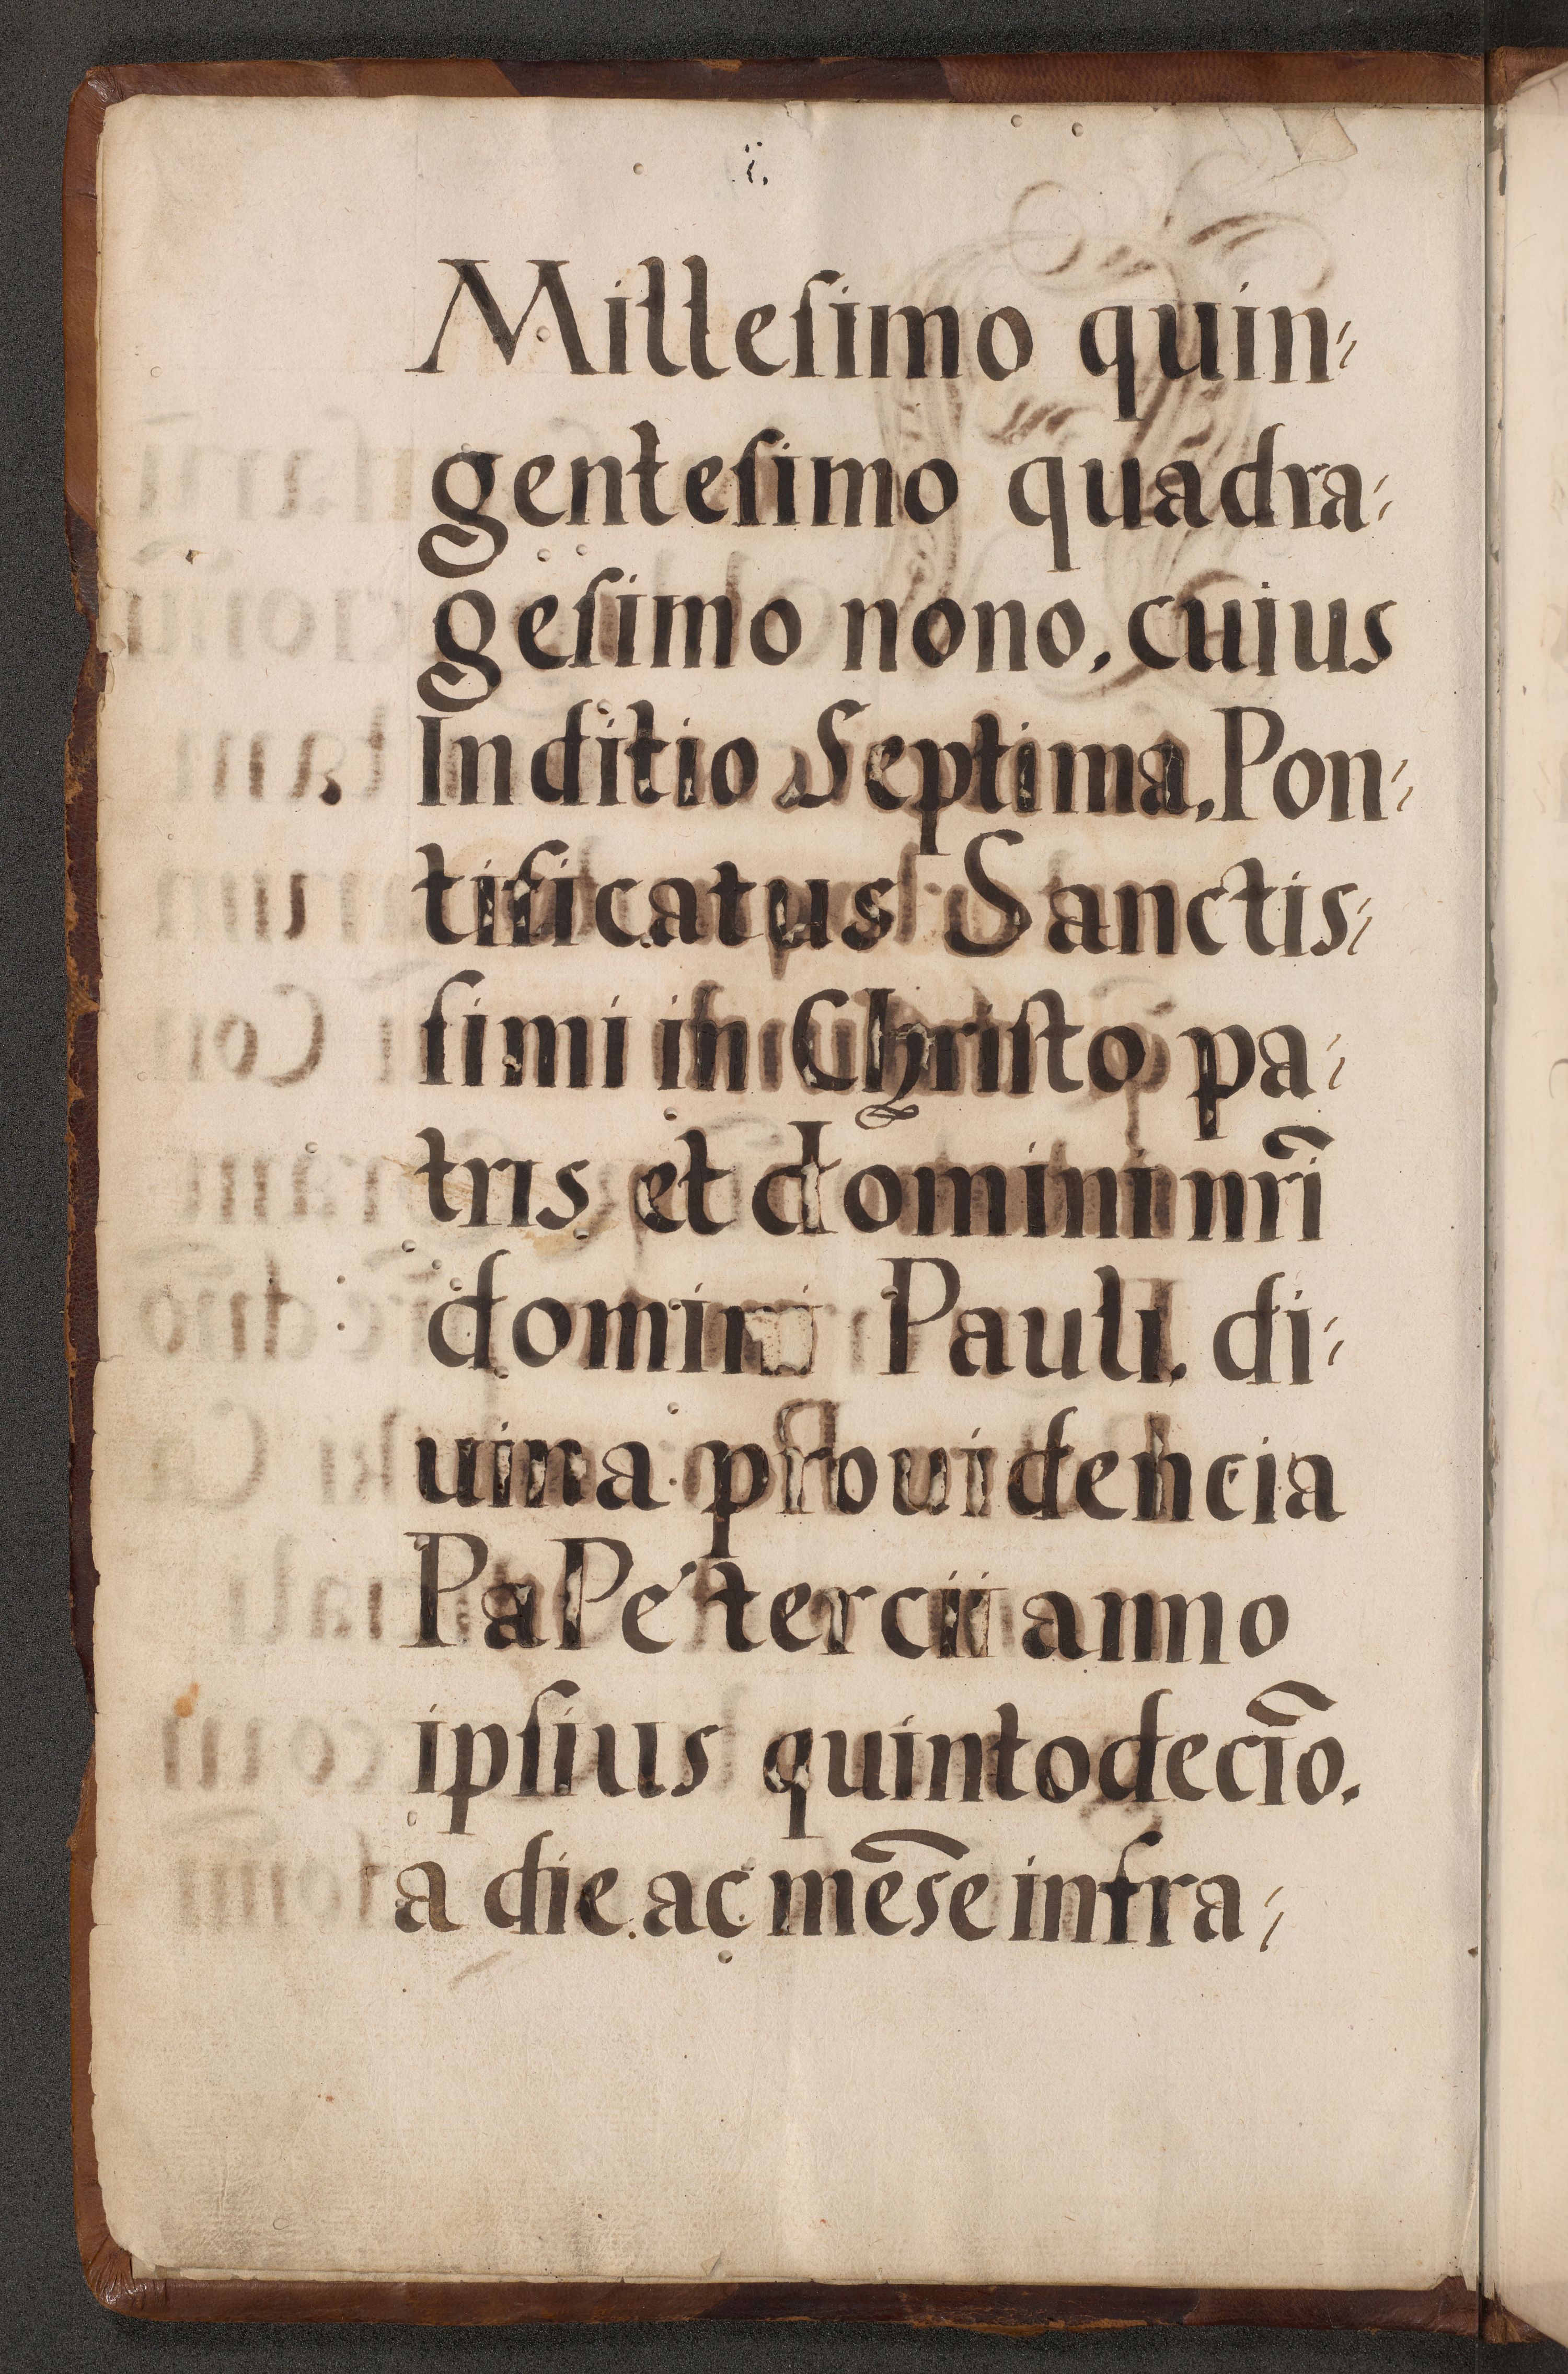 i.
Milleſimo quin⸗
genteſimo quadra⸗
geſimo nono, cuius
Inditio Septima, Pon⸗
tificatus Sanctis⸗
ſimi in Chriſto pa⸗
tris et domini nr̃i
domini Pauli. di⸗
uina prouidencia
PaPe tercii anno
ipſius quintodecĩo.
a die ac mẽse infra⸗